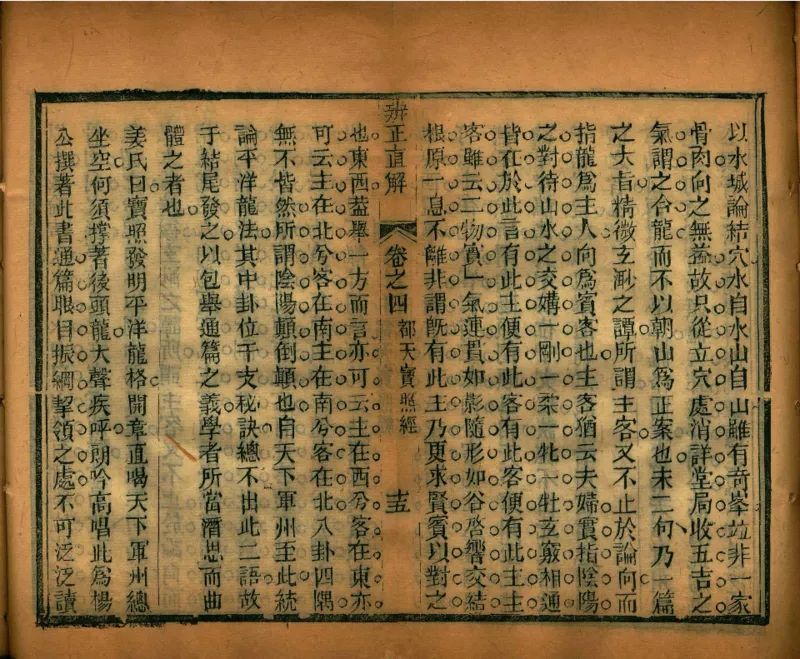 以水城論結穴水自水山自山雖有奇峯竝非一家
骨肉向之無益故只從立穴處消詳堂局收五吉之
氣謂之合龍而不以朝山爲正案也末二句乃一篇
之大旨精微玄渺之譚所謂主客又不止於論向而
指龍爲主人向爲賓客也主客猶云夫婦實指陰陽
之對待山水之交媾一剛一柔一牝一牡玄竅相通
皆在於此言有此主便有此客有此客便有此主主
客雖云二物實一氣連貫如影隨形如谷答響交結
根原一息不離非謂旣有此主乃更求賢賓以對之
辨正直解
卷之四
都天寶照經
十五
也東西葢舉一方而言亦可云主在西兮客在東亦
可云主在北兮客在南主在南兮客在北八卦四隅
無不皆然所謂陰陽顚倒顚也自天下軍州至此統
論平洋龍法其中卦位干支秘訣總不出此二語故
于結尾發之以包舉通篇之義學者所當潛思而曲
體之者也
姜氏曰寶照發明平洋龍格開章直喝天下軍州總
坐空何須撐著後頭龍大聲疾呼朗吟高唱此爲楊
公撰著此書通篇眼目振綱挈領之處不可泛泛讀